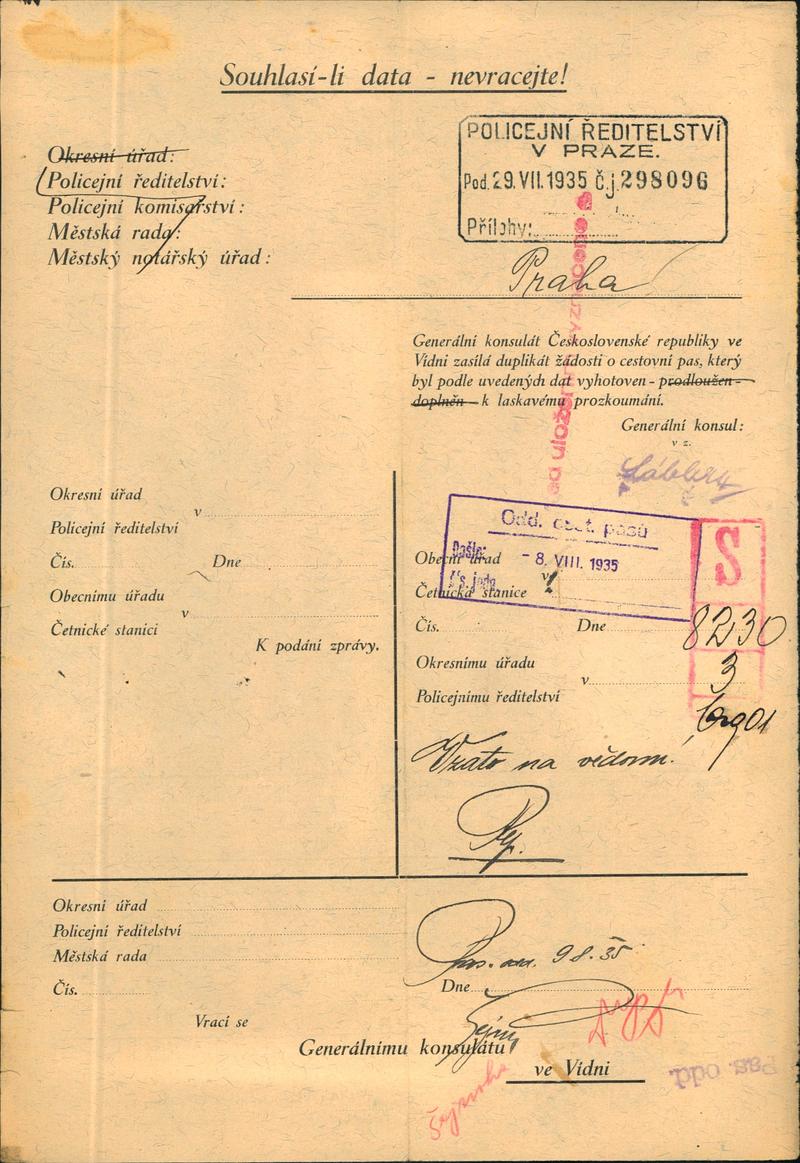 Souhlasí-li data - nevracejte!
POLICEJNÍ ŘEDITELSTVÍ
V PRAZE.
Pod. 29. VII. 1935 Č.j. 298096
Přílohy:
Okresní úřad:
Policejní ředitelství:
Policejní komisařství:
Městská rada:
Městský notářský úřad:
Praha
Generální konsulát Československé republiky ve
Vídni zasílá duplikát žádosti o cestovní pas, který
byl podle uvedených dat vyhotoven - prodloužen -
doplněn - k laskavému prozkoumání.
Generální konsul:
v z.
Okresní úřad
v
Policejní ředitelství
Čís. Dne
Obecnímu úřadu
v
Četnické stanici
K podání zprávy.
Odd. cest. pasů
Došlo: - 8. VIII. 1935
Čís. jedn.
S
Obecní úřad
v
Četnická stanice
Čís. Dne
8230
3
Okresnímu úřadu
v
Policejnímu ředitelství
Vzato na vědomí!
Okresní úřad
Policejní ředitelství
Městská rada
Čís.
Pas. odd. 9 8. 35
Dne
Vrací se
Generálnímu konsulátu
ve Vídni
Pas. odd.